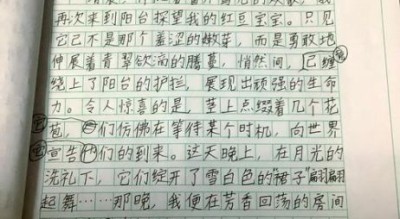 再次来到阳台探望我的红豆宝宝。只见
它已不是那个羞涩的嫩芽，而是勇敢地
伸展着青翠欲滴的腾蔓，悄然间，已缠
绕上了阳台的护拦，展现出顽强的生命
力。令人惊喜的是，茎上点缀着几个花
苞，它们仿佛在等待某个时机，向世界
宣告它们的到来。这天晚上，在月光的
洗礼下，它们绽开了雪白色的裙子翩翩
起舞……那晚，我便在芳香回荡的房间